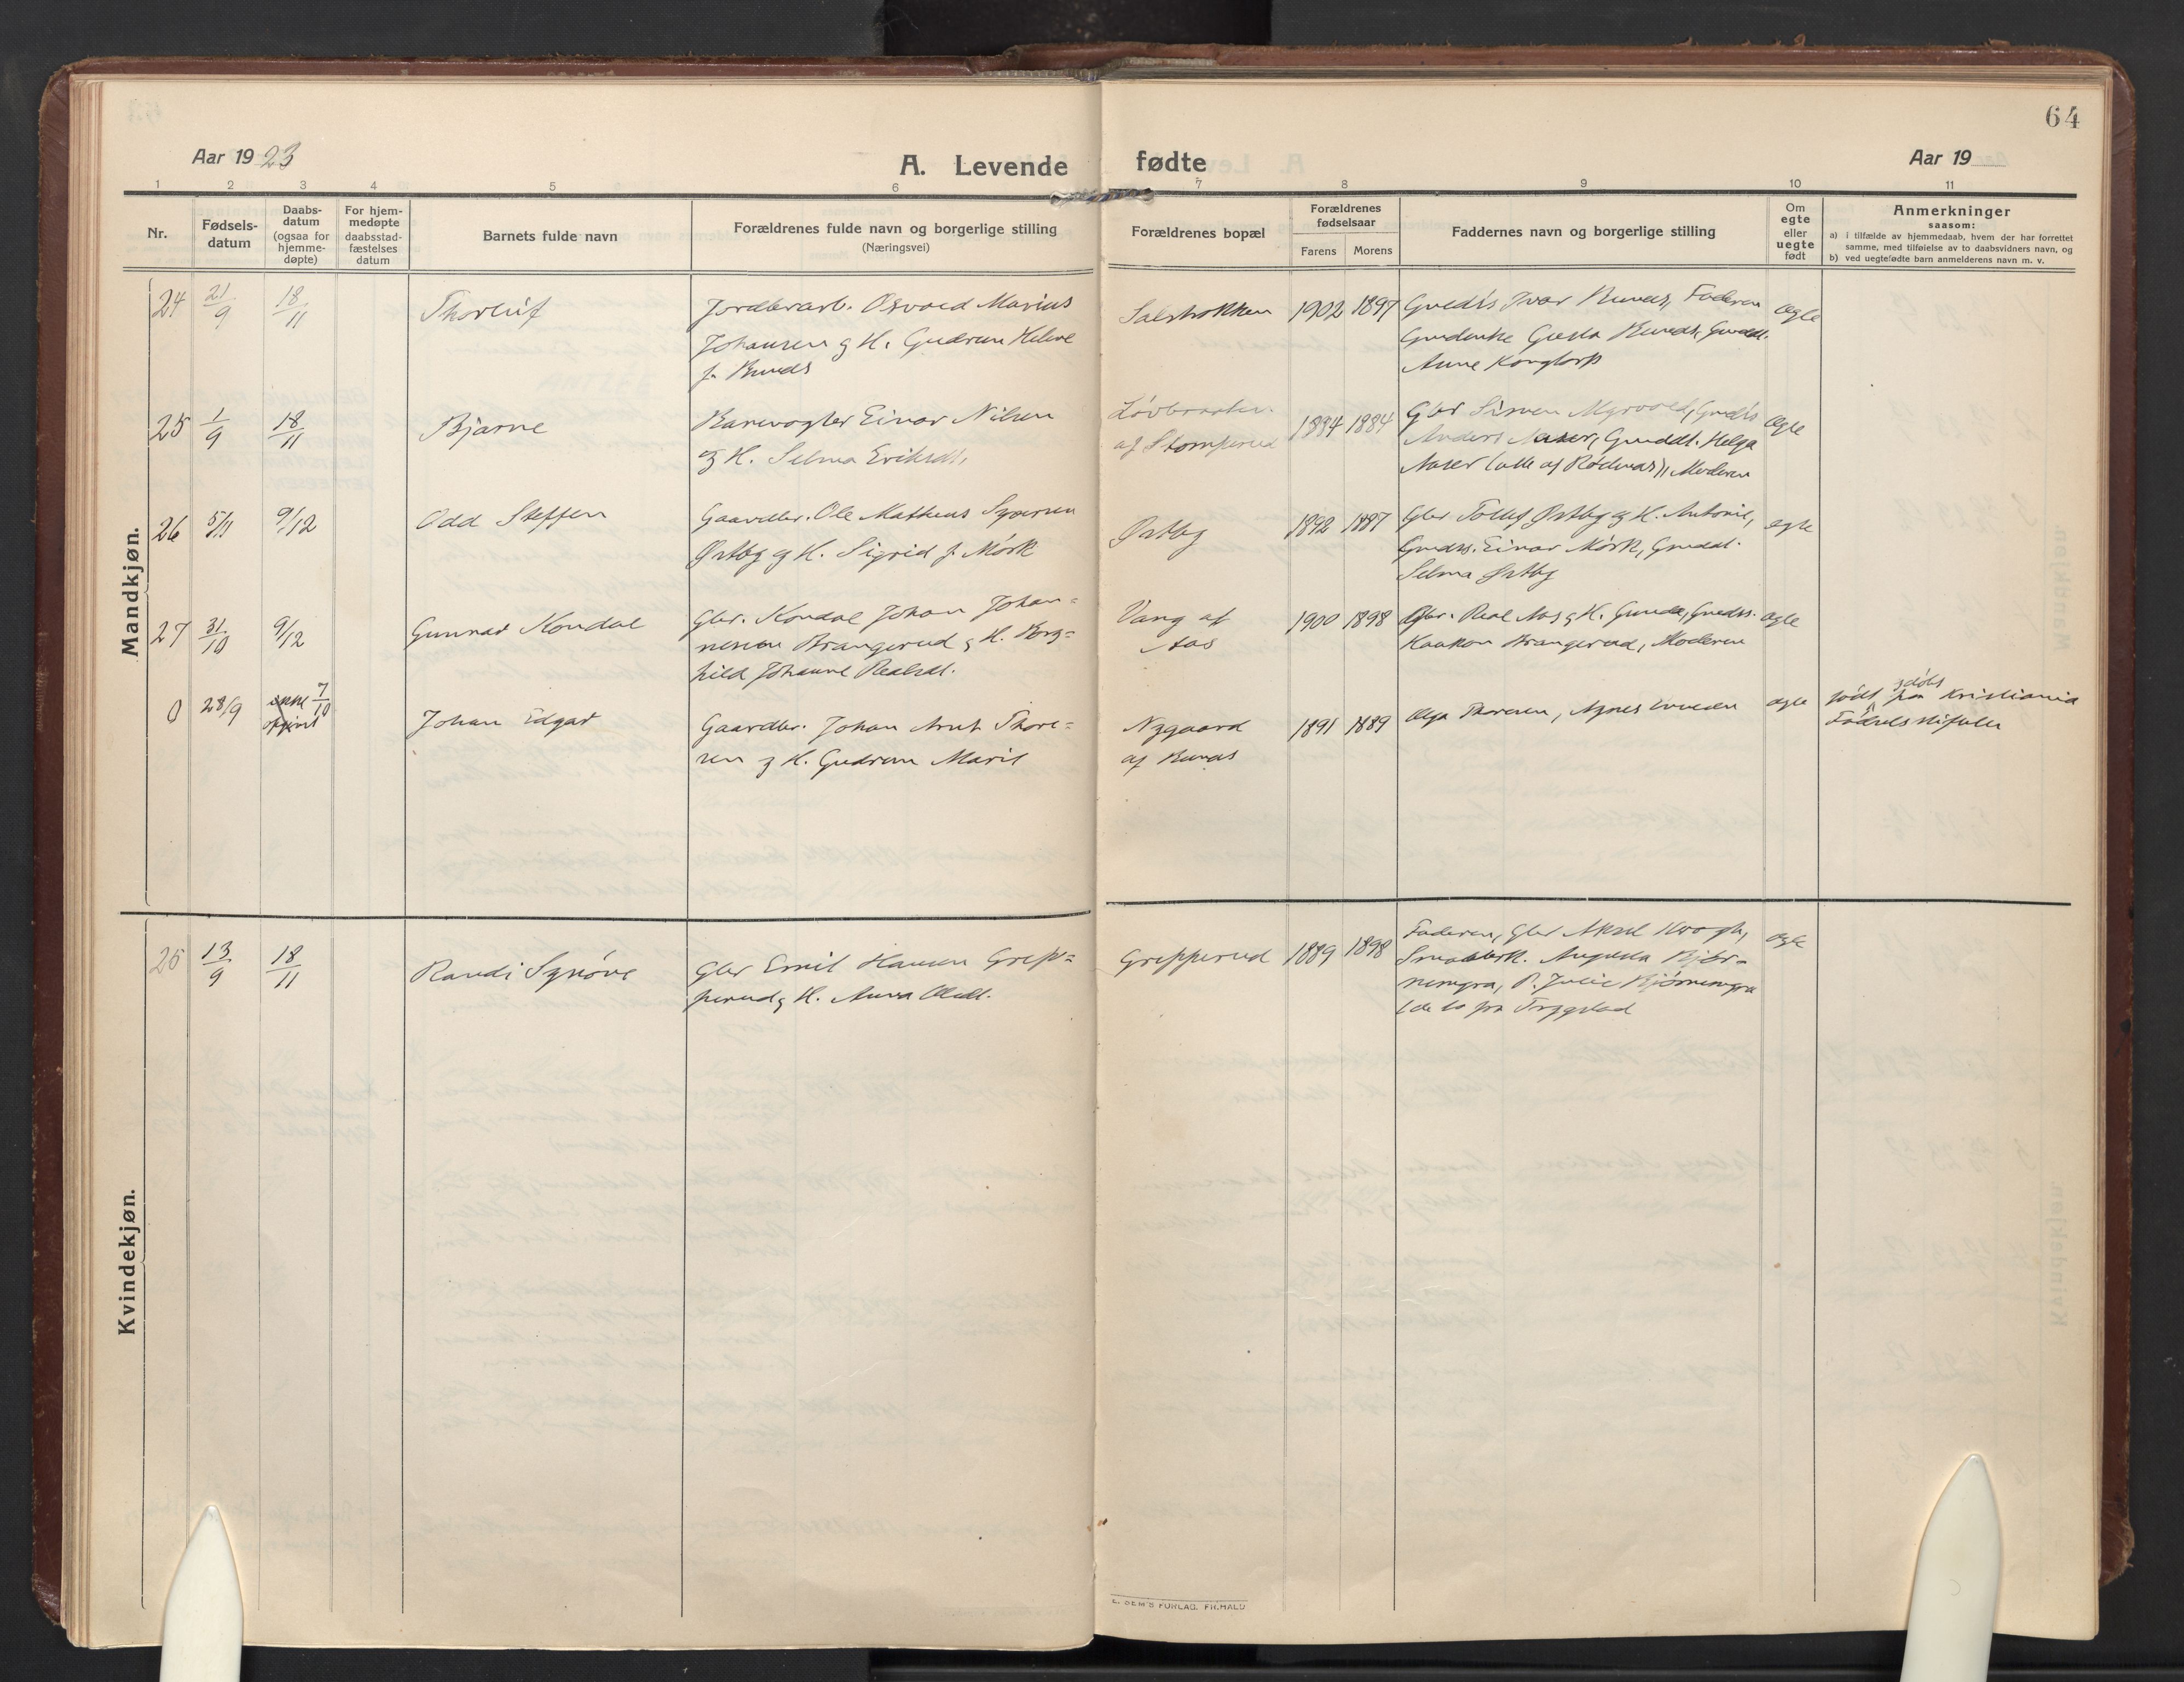 64
Aar 1923
A. Levende fødte
Aar 19
1 2 3 4 5 6 7 8 9 10 11
Nr.
Fødsels-
datum
Daabs-
datum
(ogsaa for
hjemme-
døpte)
For hjem-
medøpte
daabsstad-
fæstelses
datum
Barnets fulde navn
Forældrenes fulde navn og borgerlige stilling
(Næringsvei)
Forældrenes bopæl
Forældrenes
fødselsaar
Farens Morens
Faddernes navn og borgerlige stilling
Om
egte
eller
uegte
født
Anmerkninger
saasom:
a) i tilfælde av hjemmedaab, hvem der har forrettet
samme, med tilføielse av to daabsvidners navn, og
b) ved uegtefødte barn anmelderens navn m. v.
Mandkjøn.
24 21/9 18/11 Thorleif
Jordbrarb. Osvald Marius
Johansen g H. Gudrun Helene
f. Bunds
1902 1897
Ivar Bunds, Faderen
Bunds,
Anne
egte
25 1/9 18/11 Bjarne
Banevogter Einar Nilsen
og H. Selma Eriksdt.
af Stomperud
1894 1884
Gbr Simen
Anders Helga
Moderen
egte
26 5/11 9/12 Odd Steffen
Gaardbr. Ole Matheus Syversen
Østby og H. Sigrid f. Mørk
Østby
1892 1887
Gbr Østby og H. Antonie,
Einar Mørk,
Selma Østby
egte
27 31/10 9/12 Gunnar Kondal
Gbr. Kondal Johan Johan-
nesen Brangerud g H. Borg-
hild Johanne Realsdt.
Vang af
Aas
1900 1898
Gbr. Real Aas g H. Gunda,
Haakon Brangerud, Moderen
egte
0 28/9 7/10 Johan Edgar
Gaardbr. Johan Arnt Thore-
sen g H. Gudrun Marie
Nygaard
af Bunds
1891 1889
Olga Thoresen, Agnes
egte
født g døbt paa Kristiania
Fødselsstiftelse
Kvindekjøn.
25 13/9 18/11 Randi Synøve
Gbr Emil Hansen Grep-
perud g H. Anna Olsdt.
Grepperud
1889 1898
Faderen, Gbr Aksel Krogh,
Augusta Bjør-
nemyra, P. Julie Bjørnemyra
(de to fra Trygstad
egte
E. SEM'S FORLAG. FR.HALD